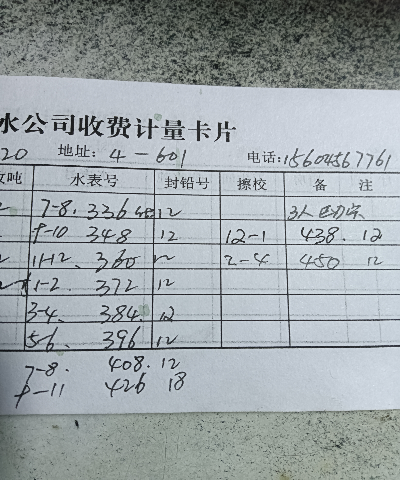 水公司收费计量卡片
20 地址: 4-601 电话:15604567761
吨 水表号 封铅号 擦校 备 注
7-8. 336 12 3人
9-10 348 12 12-1 438. 12
11-12. 360 12 2-4 450 12
1-2. 372 12
3-4. 384. 12
5-6. 396 12
7-8. 408. 12
9-11 426 18